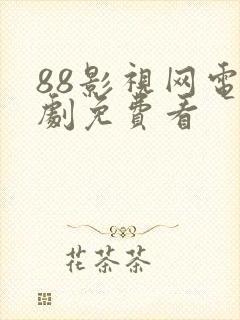 88影視网電
劇免費看
花茶茶